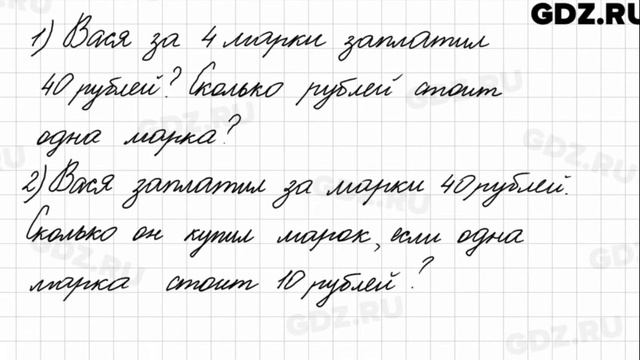 GDZ.RU
1) Вася за 4 марки заплатил
40 рублей? Сколько рублей стоит
одна марка?
2) Вася заплатил за марки 40 рублей.
Сколько он купил марок, если одна
марка стоит 10 рублей?
GDZ.RU
GDZ.RU
GDZ.RU
GDZ.RU
GDZ.RU
GDZ.RU
GDZ.RU